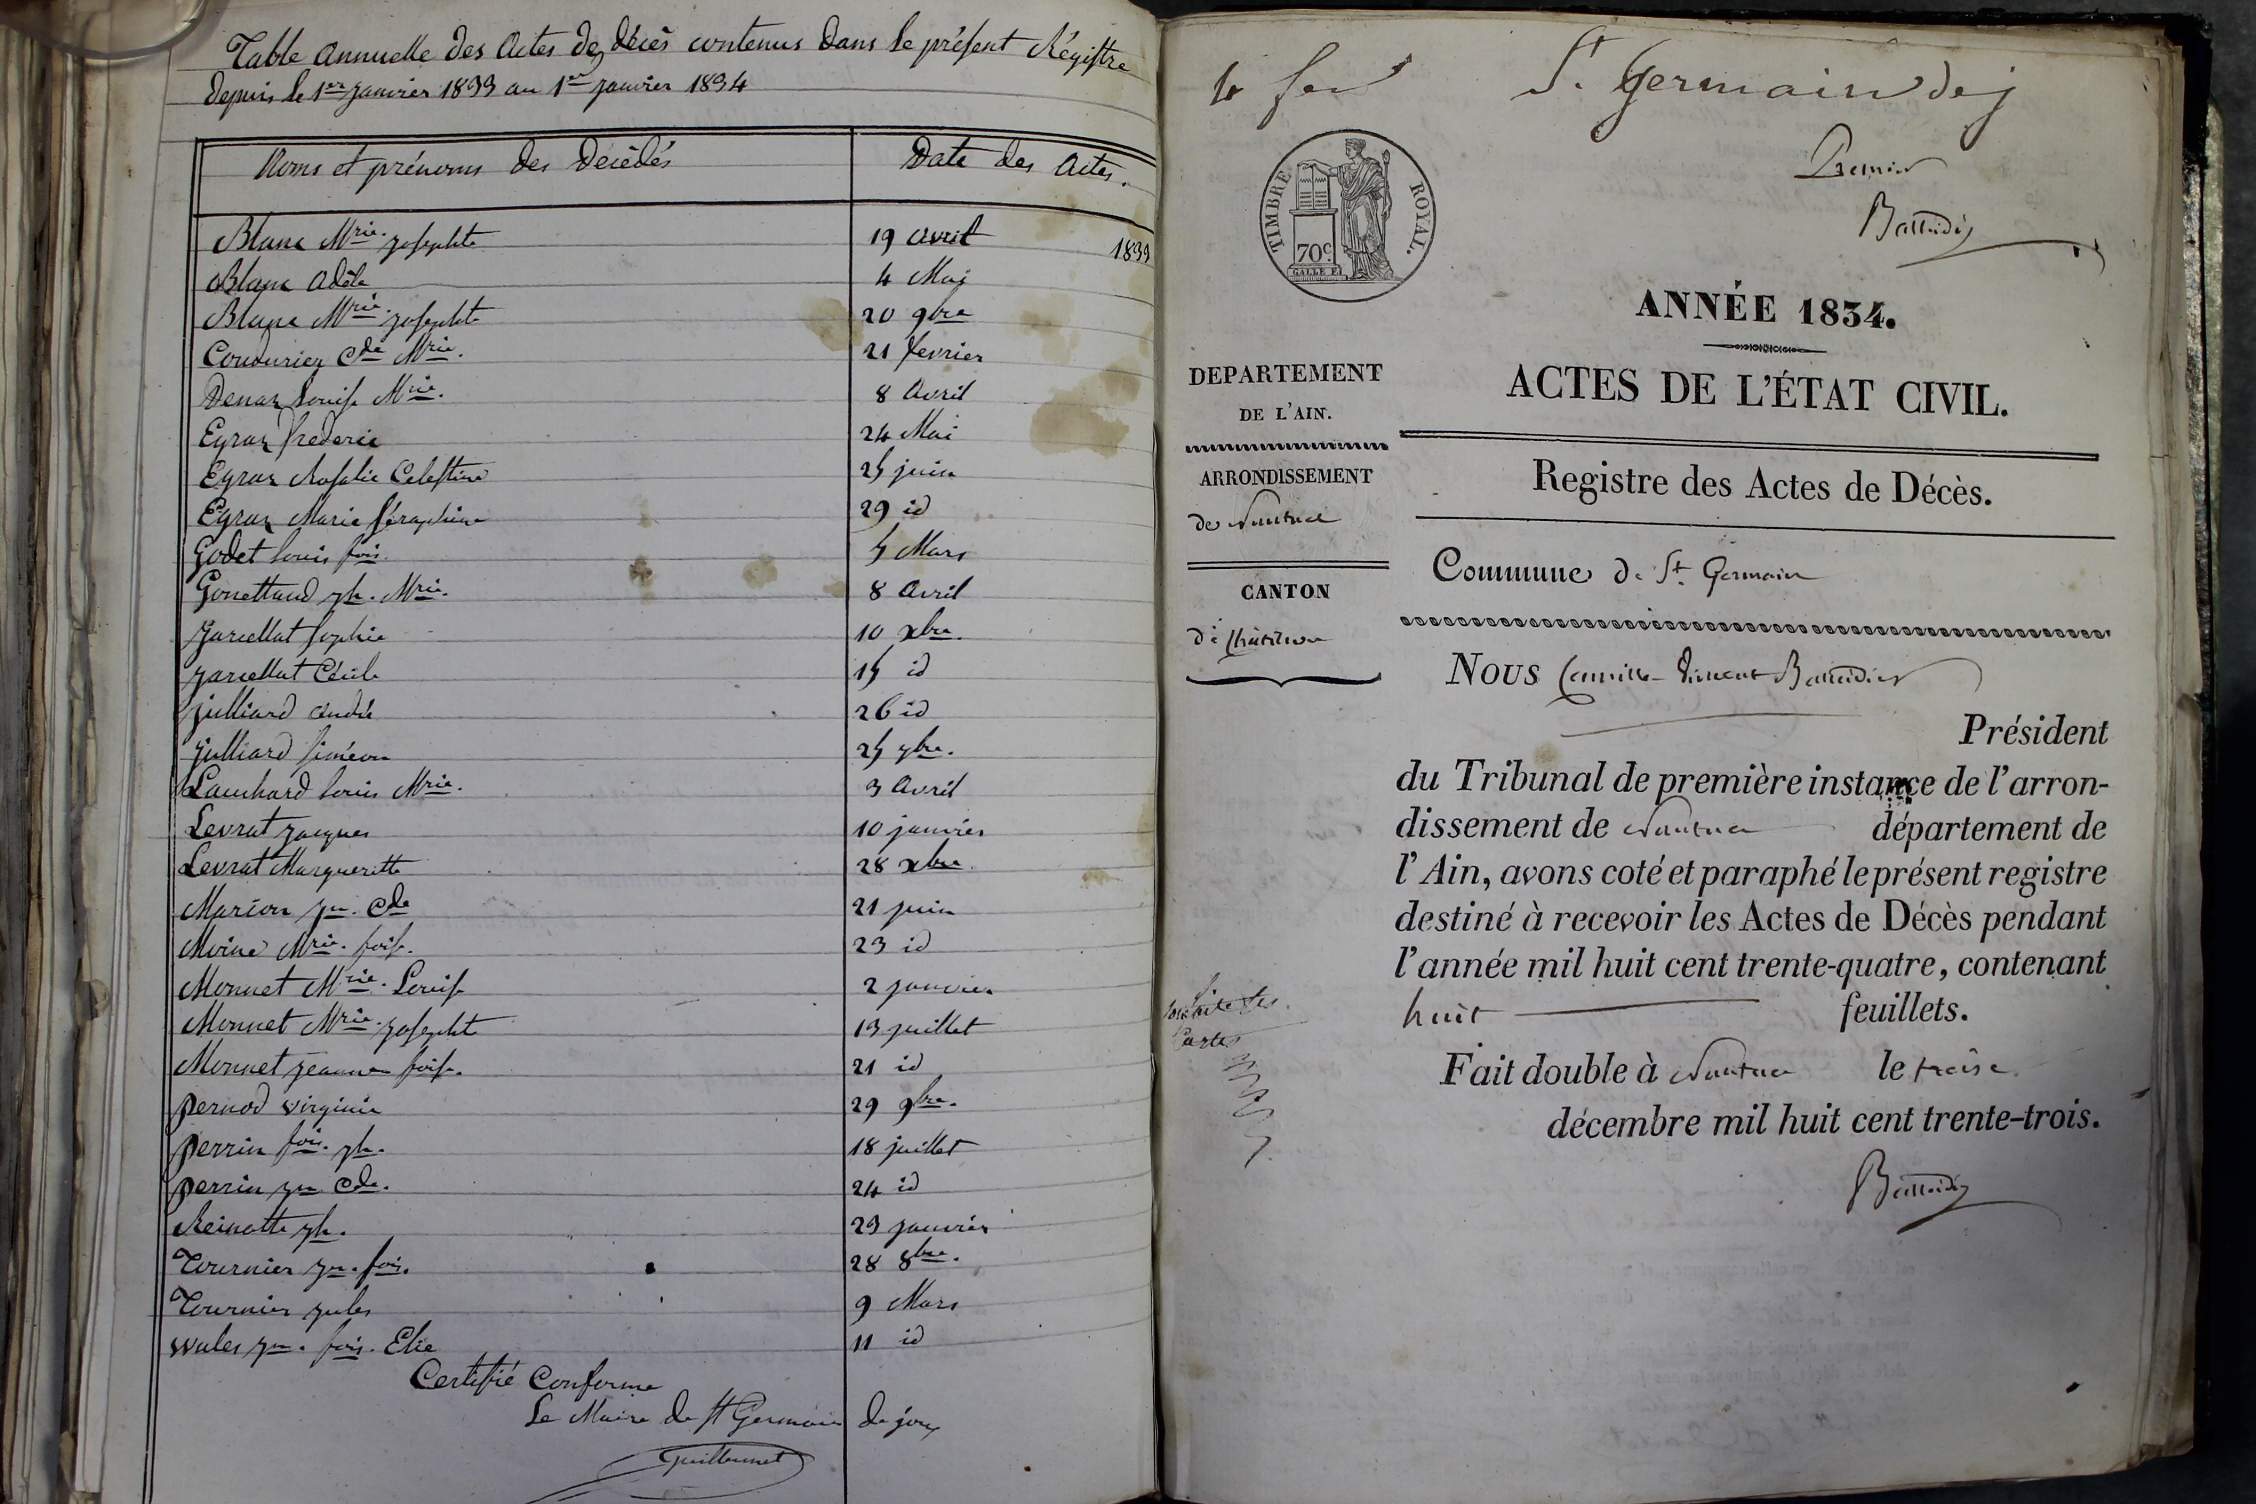 Table annuelle des actes de décès contenus dans le présent Régistre
depuis le 1er janvier 1833 au 1er janvier 1834
Noms et prénoms des Décédés Date des actes.
Blanc Mrie. josephte 19 avril 1833
Blanc adèle 4 Mai
Blanc Mrie. josephte 20 9bre
Coudurier Cde Mrie. 21 fevrier
Denar Louise Mrie. 8 avril
Egraz frederic 24 Mai
Egraz Rosalie Celestine 25 juin
Egraz Marie séraphine 29 id
Godet louis fois. 5 Mars
Gonettand jh. Mrie. 8 avril
jarcellat sophie 10 xbre.
jarcellat Cécile 15 id
julliard andré 26 id
julliard siméon 25 7bre.
Lanchard louis Mrie. 3 avril
Levrat jacques 10 janvier
Levrat Margueritte 28 xbre
Marion jn. Cde 21 juin
Moine Mrie. foise. 23 id
Monnet Mrie. Louise 2 janvier
Monnet Mrie. josephte 13 juillet
Monnet jeanne foise. 21 id
pernod virginie 29 9bre.
perrin fois. jh. 18 juillet
perrin jn Cde. 24 id
Reinatte jh. 23 janvier
Tournier jn. fois. 28 8bre.
Tournier jules 9 Mars
wales jn. fois. Elie 11 id
Certifié Conforme
Le Maire de St Germain de joux
Guillermet
St. Germain de j
Premier
Battendier
TIMBRE ROYAL.
70c
GALLE F.
ANNÉE 1834.
ACTES DE L'ÉTAT CIVIL.
Registre des Actes de Décès.
DEPARTEMENT
DE L'AIN.
ARRONDISSEMENT
de Nantua
CANTON
de Chatillon
Commune de St. Germain
NOUS Camille Vincent Battendier
Président
du Tribunal de première instance de l'arron-
dissement de Nantua département de
l'Ain, avons coté et paraphé le présent registre
destiné à recevoir les Actes de Décès pendant
l'année mil huit cent trente-quatre, contenant
huit feuillets.
Fait double à Nantua le treise
décembre mil huit cent trente-trois.
Battendier